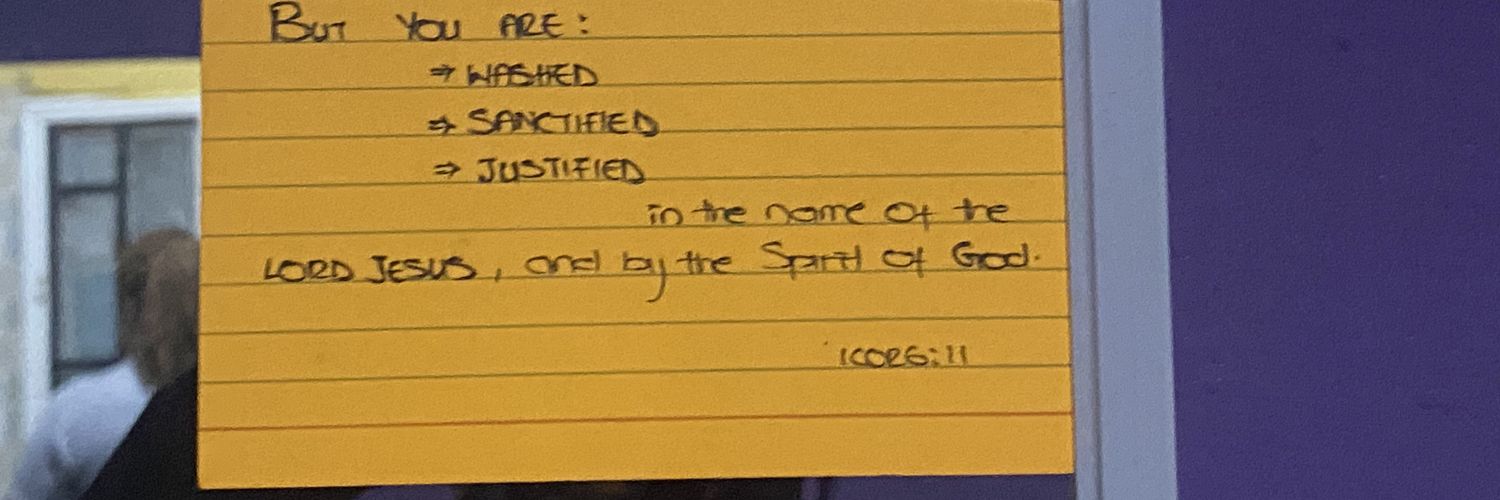 But You ARE:
⇒ WASHED
⇒ SANCTIFIED
⇒ JUSTIFIED
in the name of the
LORD JESUS, and by the Spirit of God.
1COR6:11